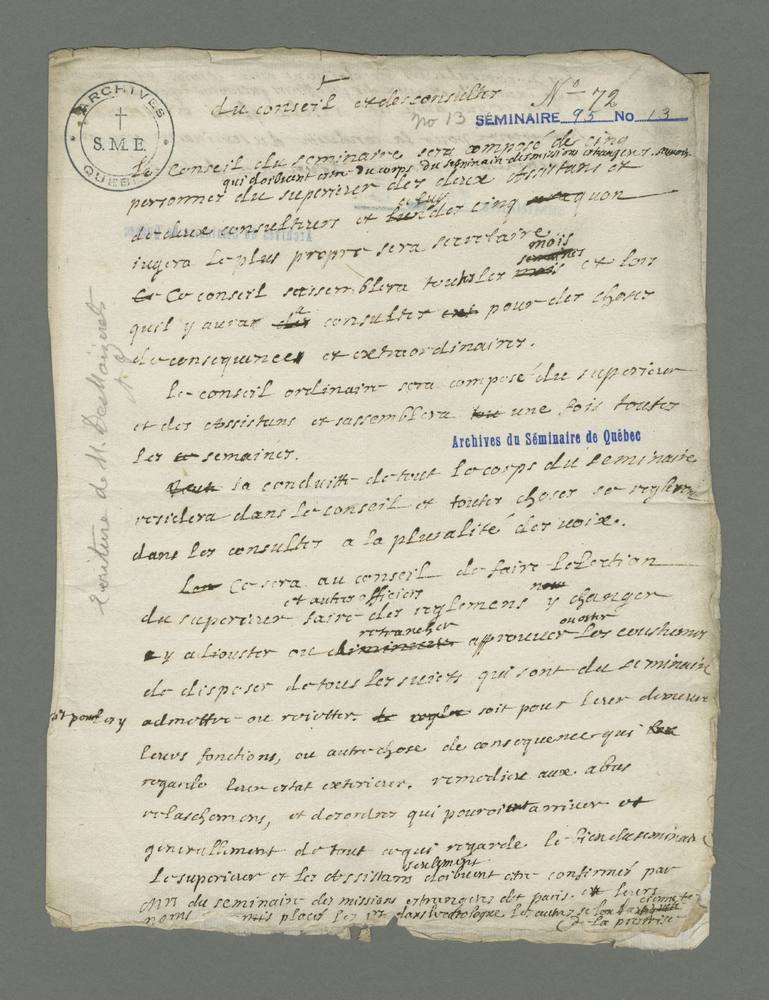 ARCHIVES
S.M.E.
QUEBEC
du conseil et des consultes
No 72
No 13
SÉMINAIRE 95 No 13
Le Conseil du seminaire sera composé de cinq
qui doibvent estre du corps du seminaire des missions estrangeres. scavoir
personnes du superieur des deux Assistans et
de deux consulteurs et celuy des cinq quon
iugera Le plus propre sera secretaire
mois
semaines
Ce Ce conseil sassemblera touts les mois et lors
quil y aura a consulter pour des choses
de consequence et extraordinaires.
Le conseil ordinaire sera composé du superieur
et des Assistans et sassemblera une fois toutes
Les semaines.
la conduitte de tout Le corps du seminaire
residera dans Le conseil et toutes choses se regleront
dans les consultes a la pluralité des voix.
Ce sera au conseil de faire Lelection
et autres officiers
du superieur faire des reglemens y changer
retrancher
ou oster
y aiouster ou diminuer approuver Les coustumes
de disposer de tous les suiets qui sont du seminaire
admettre ou reietter soit pour leur demeure
leurs fonctions, ou autre chose de consequence qui
regarde leur estat exterieur. remedier aux abus
relaschemens, et desordres qui pouroient arriver et
generallement de tout ce qui regarde le bien du seminaire
seulement
Le superieur et Les Assistans doibvent etre confirmés par
MM du seminaire des missions estrangeres de paris. et leurs
noms mis placés les 1ers dans le catalogue les autres selon
la prestrise
Archives du Séminaire de Québec
Ecriture de M. Des Maizerets